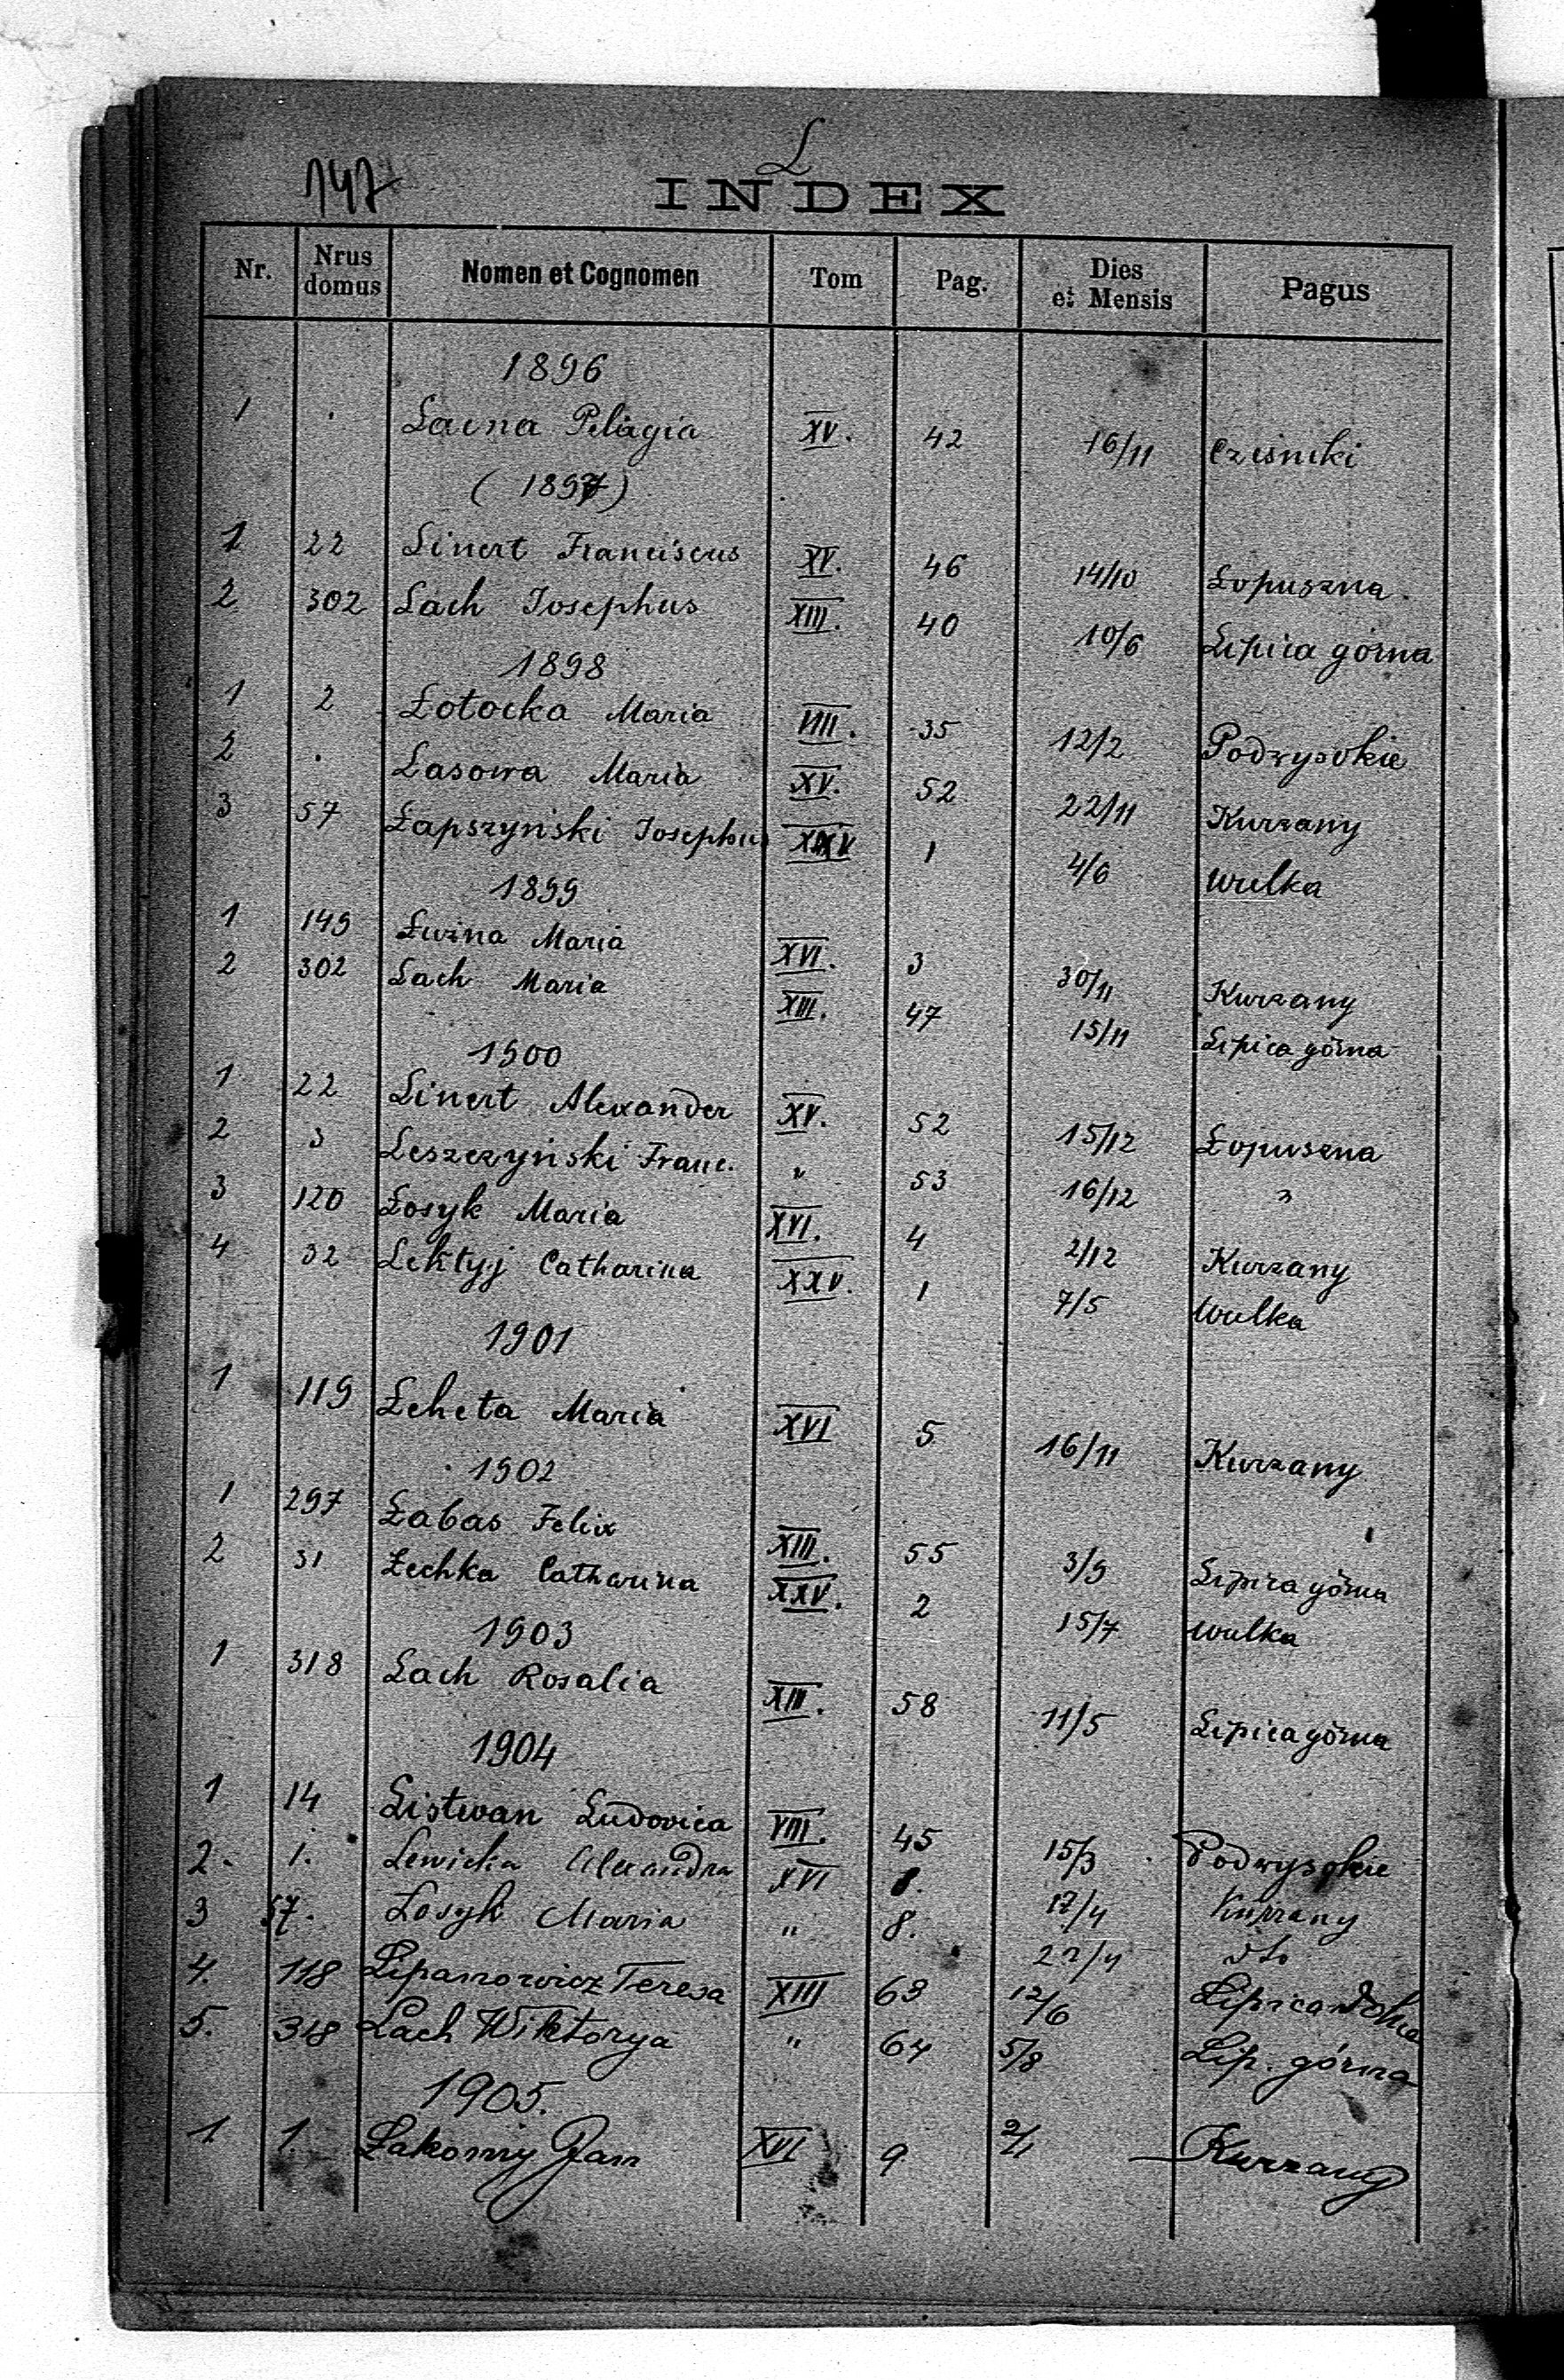 147
L
INDEX
Nr. Nrus domus Nomen et Cognomen Tom Pag. Dies et Mensis Pagus
1896
1 . Łacna Pelagia XV. 42 16/11 Cześniki
(1897)
1 22 Linert Franciscus XV. 46 14/10 Łopuszna
2 302 Lach Josephus XIII. 40 10/6 Lipica górna
1898
1 2 Łotocka Maria VIII. 35 12/2 Podwysokie
2 . Lasowa Maria XV. 52 22/11 Kurzany
3 57 Łapszyński Josephus XXV 1 4/6 Wulka
1899
1 149 Luzna Maria XVI. 3 30/11 Kurzany
2 302 Lach Maria XIII. 47 15/11 Lipica górna
1900
1 22 Linert Alexander XV. 52 15/12 Łopuszna
2 3 Leszczyński Franc. " 53 16/12 "
3 120 Łosyk Maria XVI. 4 2/12 Kurzany
4 32 Lektyj Catharina XXV. 1 7/5 Wulka
1901
1 119 Leheta Maria XVI 5 16/11 Kurzany
1902
1 297 Łabas Felix XIII. 55 3/9 Lipica górna
2 31 Łechka Catharina XXV. 2 15/7 Wulka
1903
1 318 Lach Rosalia XIII. 58 11/5 Lipica górna
1904
1 14 Listwan Ludovica VIII. 45 15/3 Podwysokie
2. 1. Lewicka Alexandra XVI 8. 17/4 Kurzany
3 57. Łosyk Maria " 8. 22/4 dto
4. 118 Lipanowicz Teresa XIII 63 12/6 Lipica dolna
5. 318 Lach Wiktorya " 64 5/8 Lip. górna
1905.
1 1 Łakomy Jan XVI 9 2/1 Kurzany